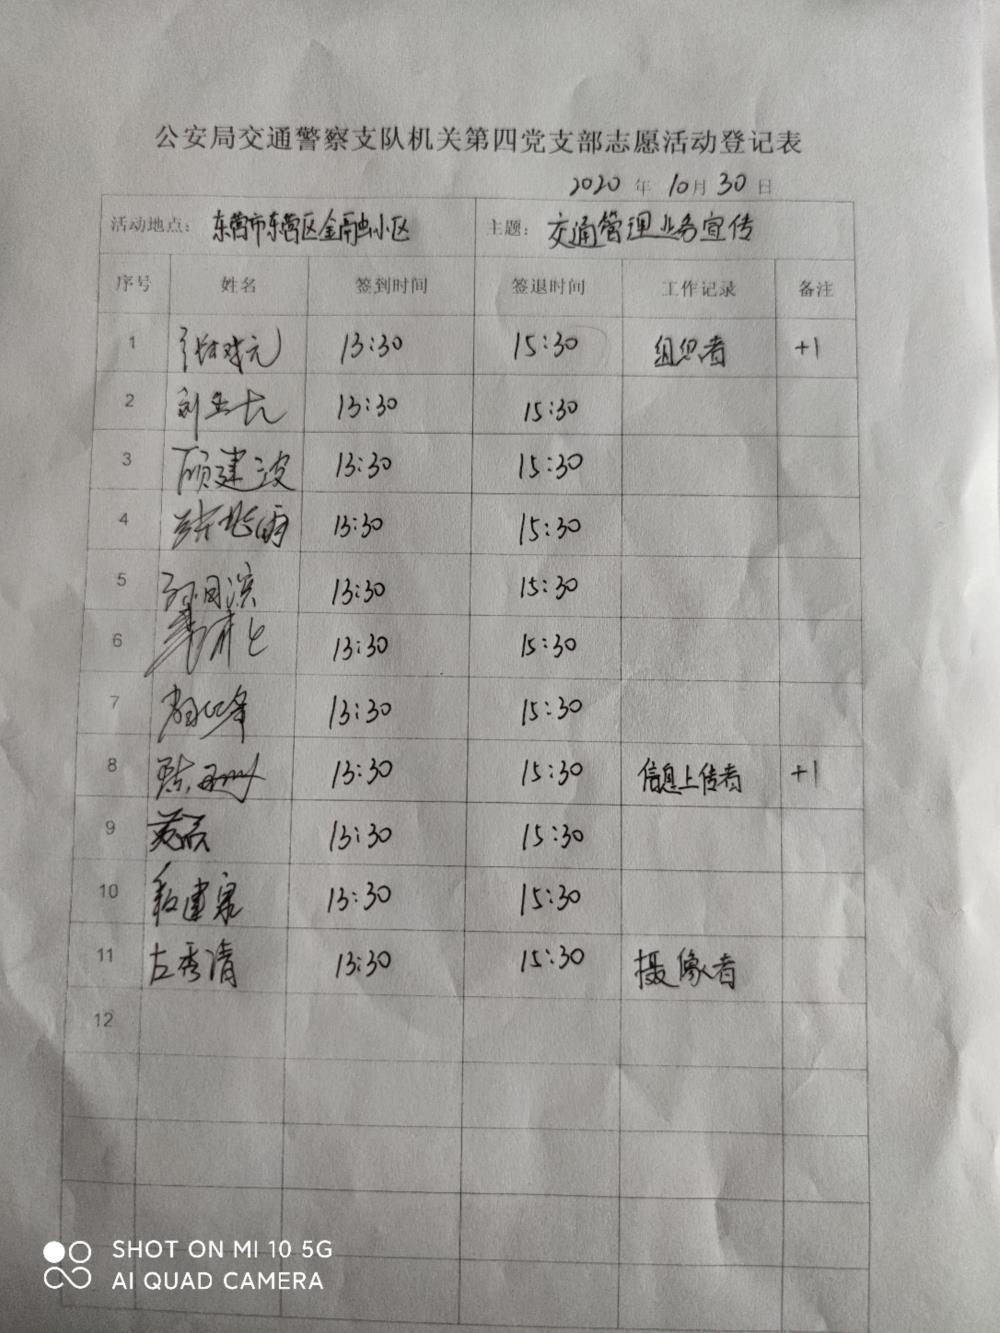 公安局交通警察支队机关第四党支部志愿活动登记表
2020 年 10月 30 日
活动地点： 东营市东营区金融小区 主题： 交通管理业务宣传
序号 姓名 签到时间 签退时间 工作记录 备注
1 13:30 15:30 组织者 +1
2 13:30 15:30
3 顾建波 13:30 15:30
4 13:30 15:30
5 13:30 15:30
6 13:30 15:30
7 13:30 15:30
8 13:30 15:30 信息上传者 +1
9 13:30 15:30
10 13:30 15:30
11 左秀清 13:30 15:30 摄像者
12
SHOT ON MI 10 5G
AI QUAD CAMERA